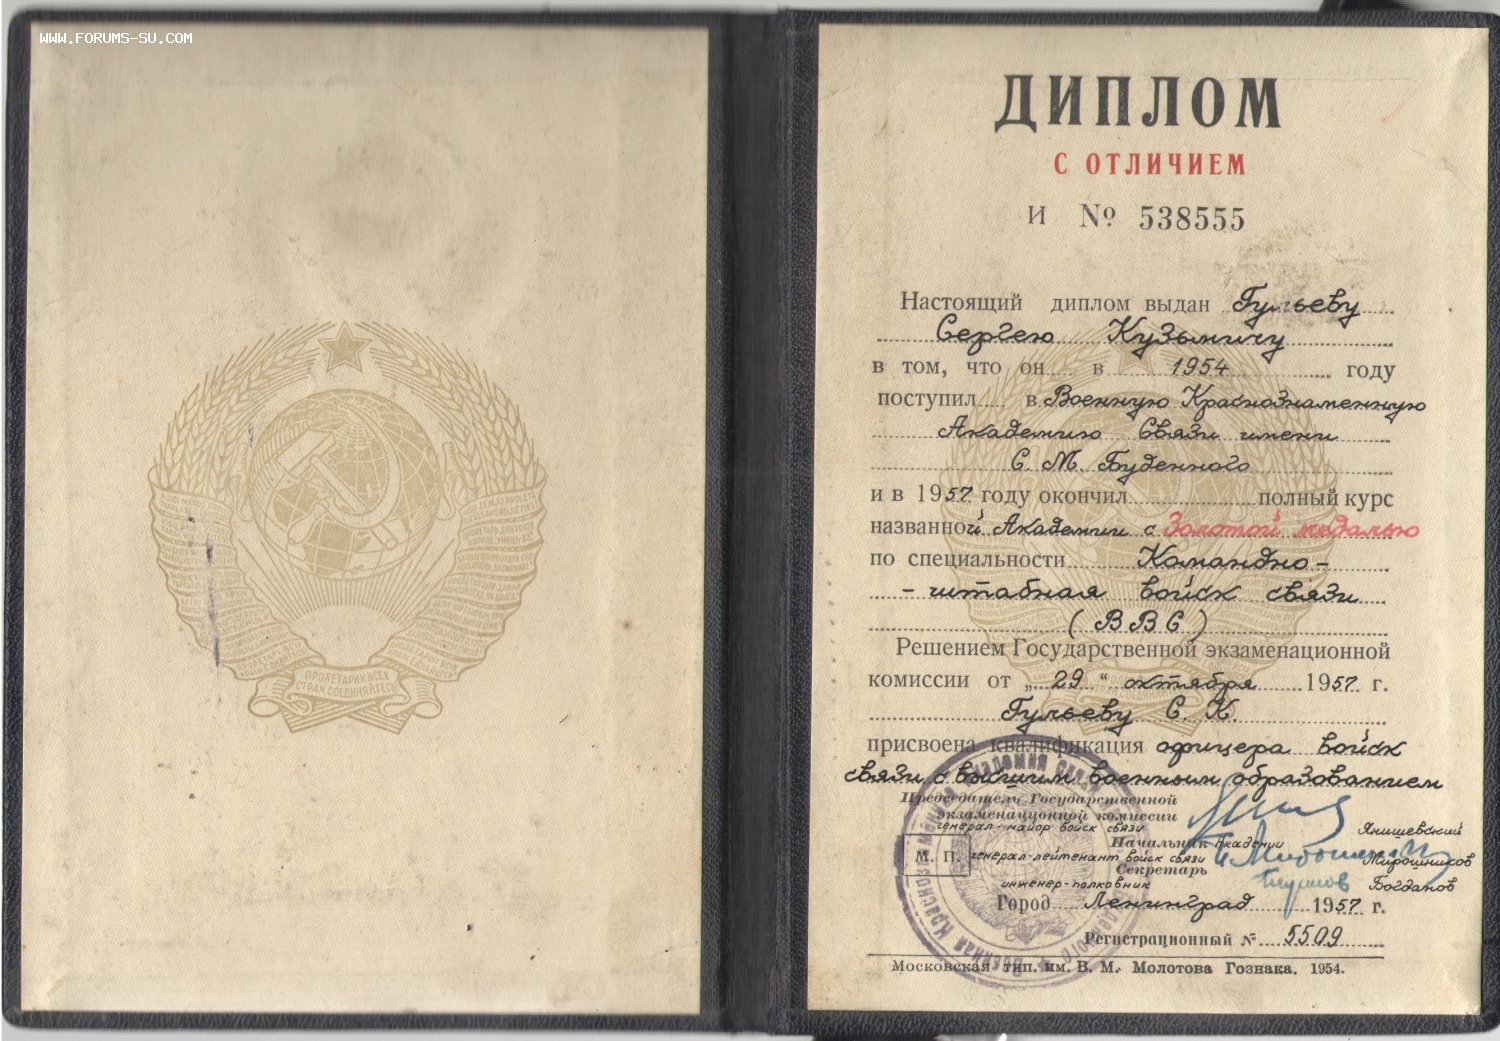 WWW.FORUMS-SU.COM
ПРОЛЕТАРИИ ВСЕХ
СТРАН СОЕДИНЯЙТЕСЬ
ДИПЛОМ
С ОТЛИЧИЕМ
И № 538555
Настоящий диплом выдан Гульеву
Сергею Кузьмичу
в том, что он в 1954 году
поступил в Военную Краснознаменную
Академию Связи имени
С. М. Буденного
и в 1957 году окончил полный курс
названной Академии с Золотой медалью
по специальности Командно-
- штабная войск связи
(ВВС)
Решением Государственной экзаменационной
комиссии от „29“ октября 1957 г.
Гульеву С. К.
присвоена квалификация офицера войск
связи с высшим военным образованием
Председатель Государственной
экзаменационной комиссии
генерал-майор войск связи Янишевский
Начальник Академии
М. П. генерал-лейтенант войск связи Мирошников
Секретарь
инженер-полковник Богданов
Город Ленинград 1957 г.
Регистрационный № 5509
Московская тип. им. В. М. Молотова Гознака. 1954.